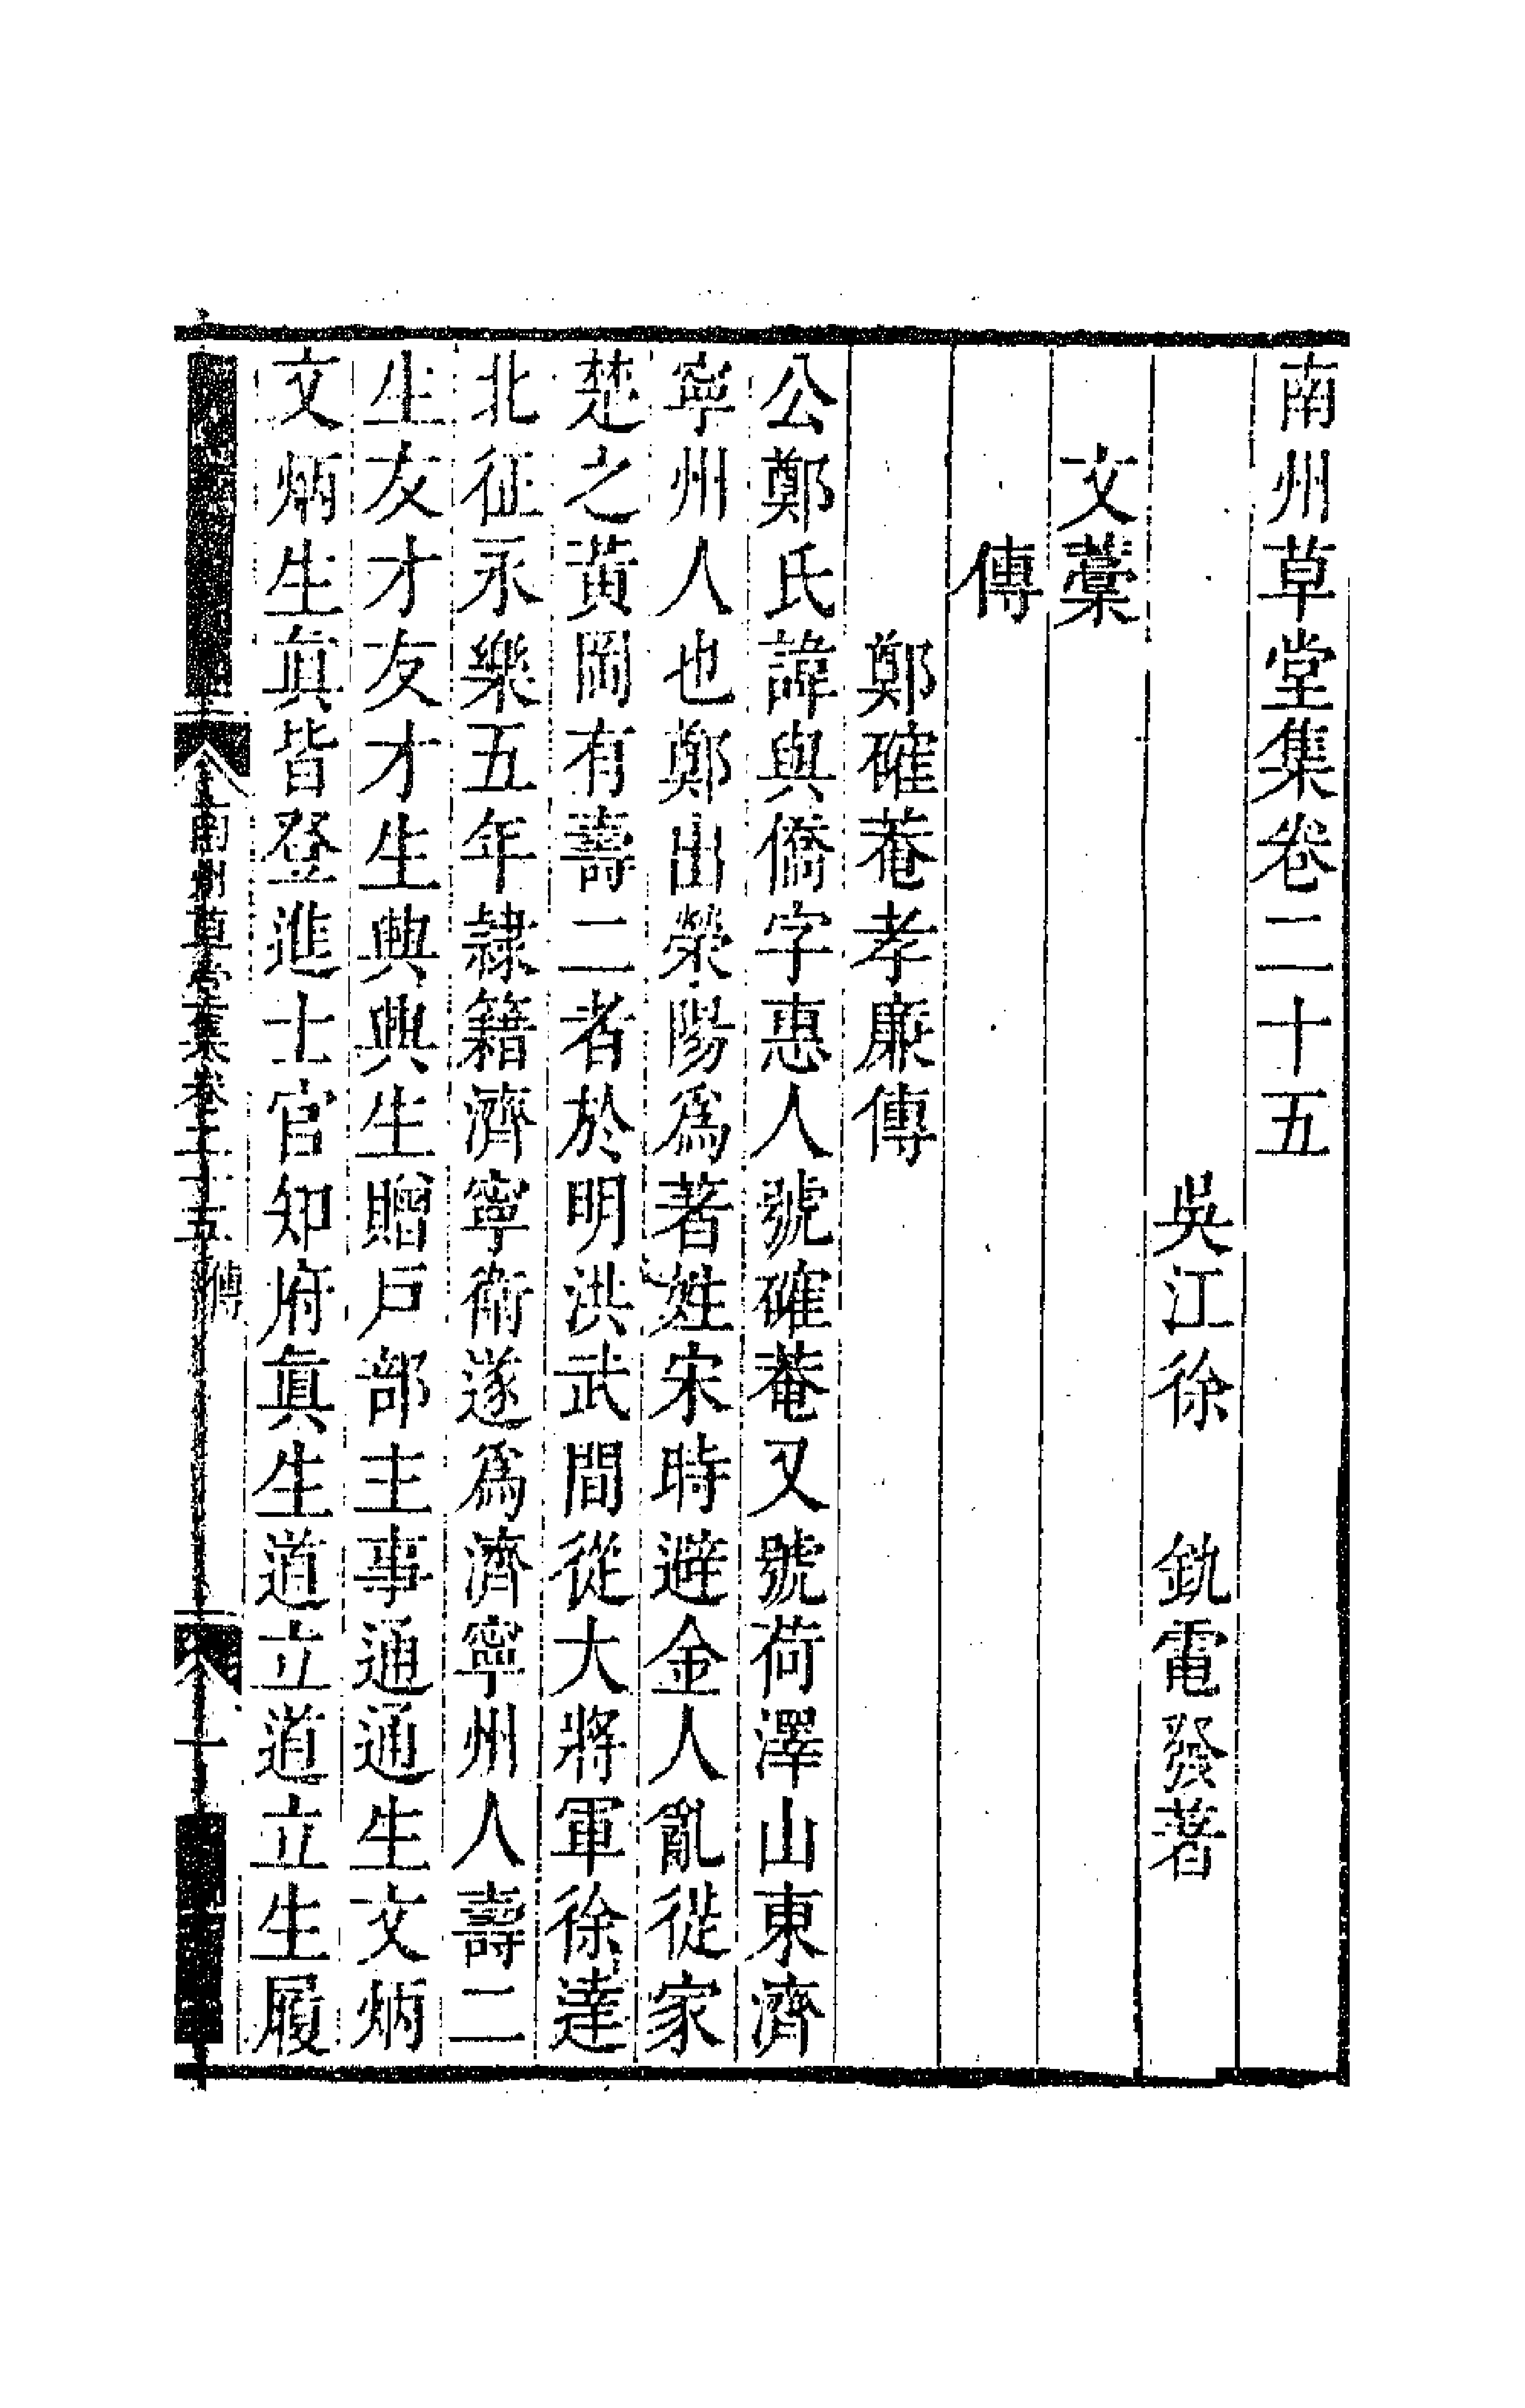 南州草堂集卷二十五
吳江徐　釚電發著
文藁
傳
鄭確菴孝廉傳
公鄭氏諱與僑字惠人號確菴又號荷澤山東濟
寧州人也鄭出滎陽爲著姓宋時避金人亂徙家
楚之黃岡有壽二者於明洪武間從大將軍徐達
北征永樂五年隷籍濟寧衛遂爲濟寧州人壽二
生友才友才生興興生贈戶部主事通通生文炳
文炳生眞皆登進士官知府眞生道立道立生履
南州草堂集卷二十五　傳　一